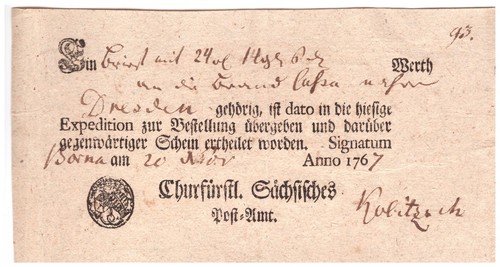 93.
Ein Brief mit 24 14 6 Werth
an die Brand Cassa
Dresden gehörig, ist dato in die hiesige
Expedition zur Bestellung übergeben und darüber
gegenwärtiger Schein ertheilet worden. Signatum
Borna am 20 Anno 1767
Churfürstl. Sächsisches
Post-Amt.